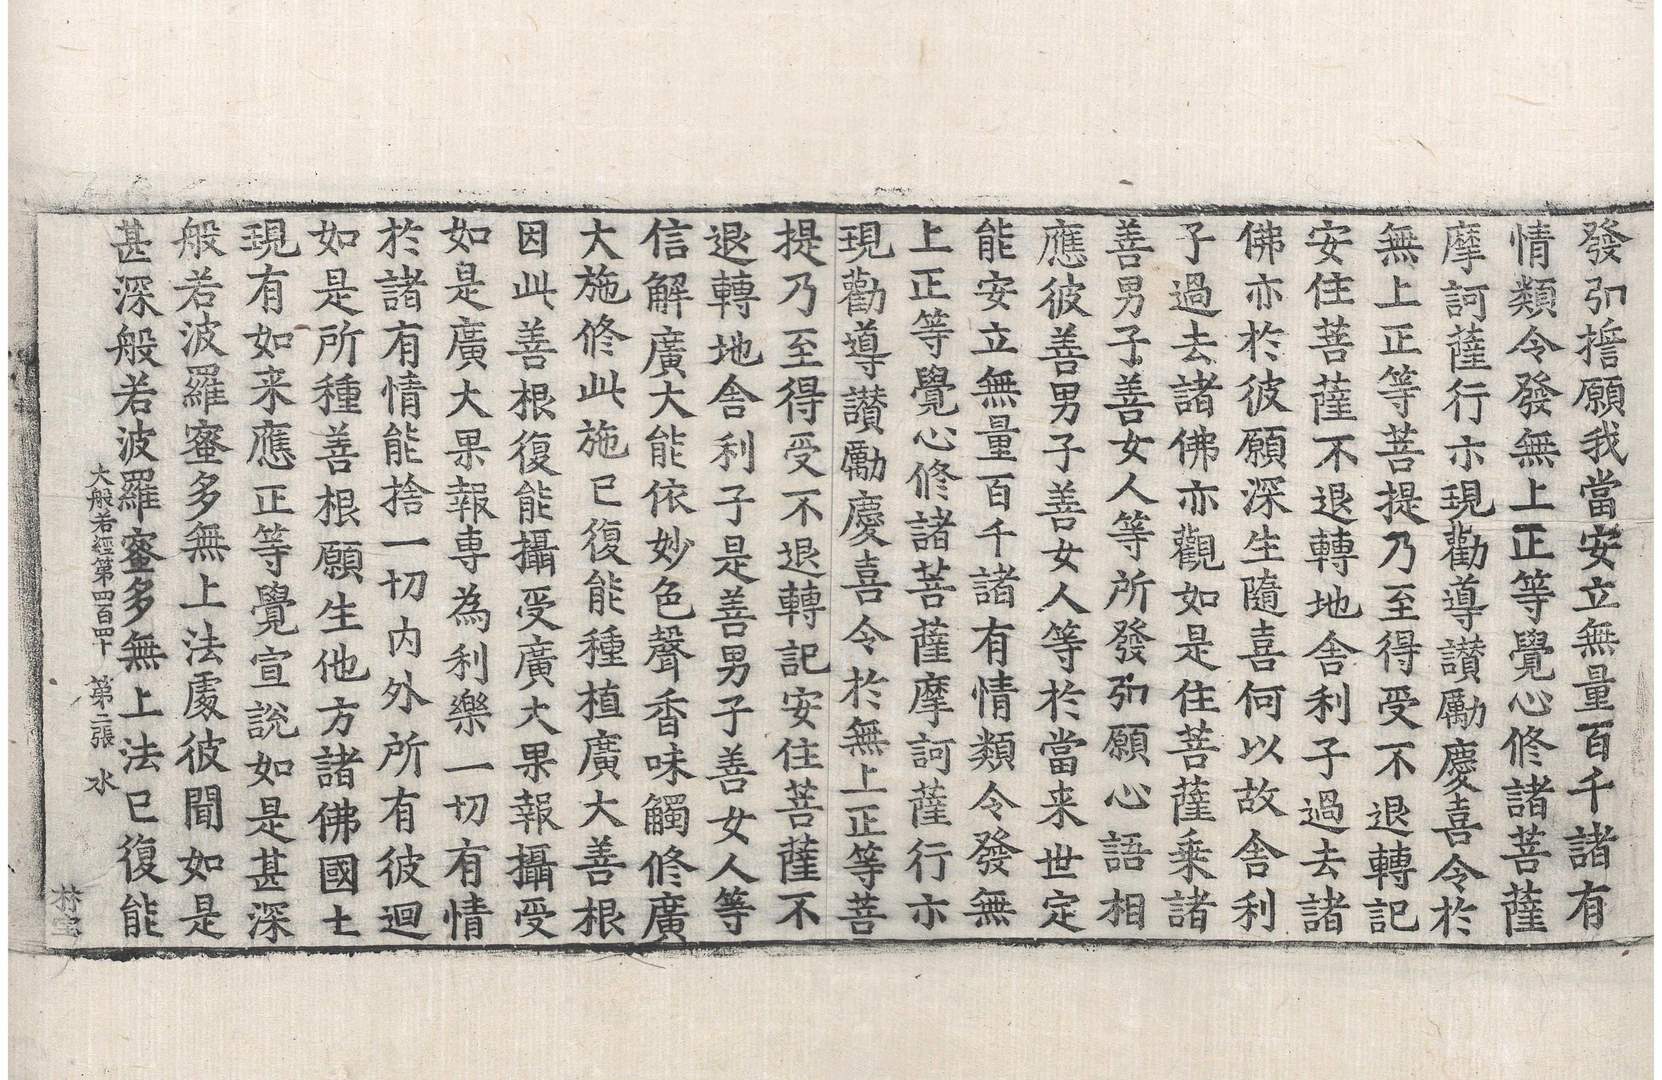 發弘擔願我當安立無量百千諸有
情類令發無上正等覺心修諸菩薩
摩訶薩行亦現勸導讃勵慶喜令於
無上正等菩提乃至得受不退轉記
安住菩薩不退轉地舍利子過去諸
佛亦於彼願深生隨喜何以故舍利
子過去諸佛亦觀如是住菩薩乗諸
善男子善女人等所發弘願心語相
應彼善男子善女人等於當来世定
能安立無量百千諸有情類令發無
上正等覺心修諸菩薩摩訶薩行亦
現勸導讃勵慶喜令於無上正等菩
提乃至得受不退轉記安住菩薩不
退轉地舍利子是善男子善女人等
信解廣大能依妙色聲香味觸修廣
大施修此施已復能種植廣大善根
因此善根復能攝受廣大果報攝受
如是廣大果報専為利樂一切有情
於諸有情能捨一切内外所有彼迴
如是所種善根願生他方諸佛國土
現有如来應正等覺宣說如是甚深
般若波羅蜜多無上法處彼聞如是
甚深般若波羅蜜多無上法已復能
大般若經第四百四十 第二張 水